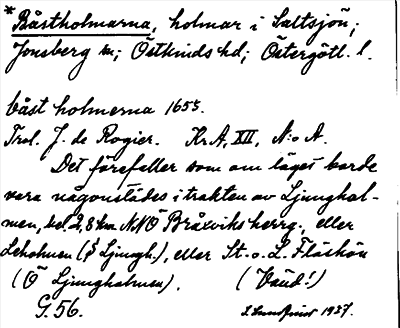 * Båstholmarna, holmar i Saltsjön;
Jonsberg sn; Östkinds hd; Östergötl. l.
båst holmerna 1655.
Trol. J. de Rogier. Kr.A, XII, N:o A.
Det förefaller som om läget borde
vara någonstädes i trakten av Ljunghol-
men, bel. 2,8 km NNÖ Bråxviks herrg., eller
Leholmen (S Ljungh.), eller St. o. L. Flåskön
(Ö Ljungholmen). (Vaud!)
G. 56. 1937.